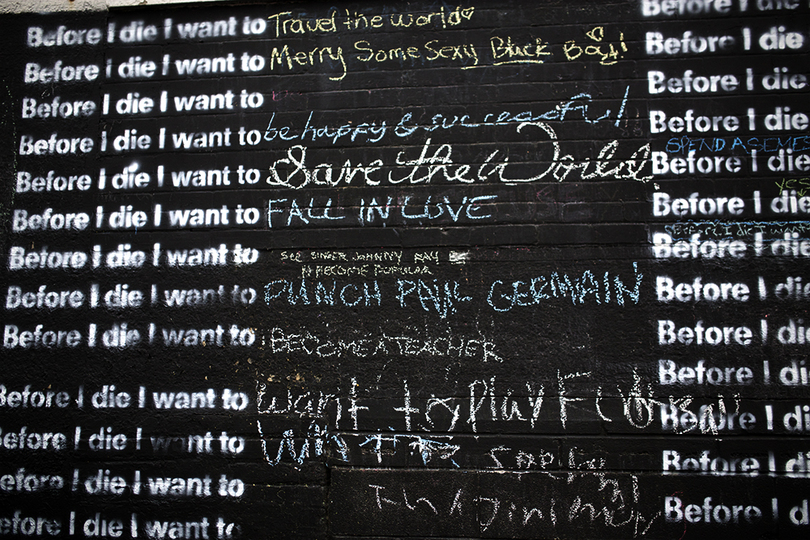 Before I die I want to Travel the world
Before I die I want to Merry Some Sexy Black Boy!
Before I die I want to
Before I die I want to be happy & successful
Before I die I want to Save the World
Before I die I want to FALL IN LOVE
Before I die I want to SEE SINGER JOHNNY RAY
BECOME POPULAR
Before I die I want to PUNCH PAUL GERMAIN
Before I die I want to BECOME A TEACHER
Before I die I want to Want to play
Before I die I want to
Before I die I want to
Before I die I want to
Before I die
Before I die
Before I die
Before I die
SPEND A SEMES
Before I die
YES
Before I die
BEFORE I DIE I WANT
Before I die
Before I die
Before I die
Before I die
Before I die
Before I die
Before I d